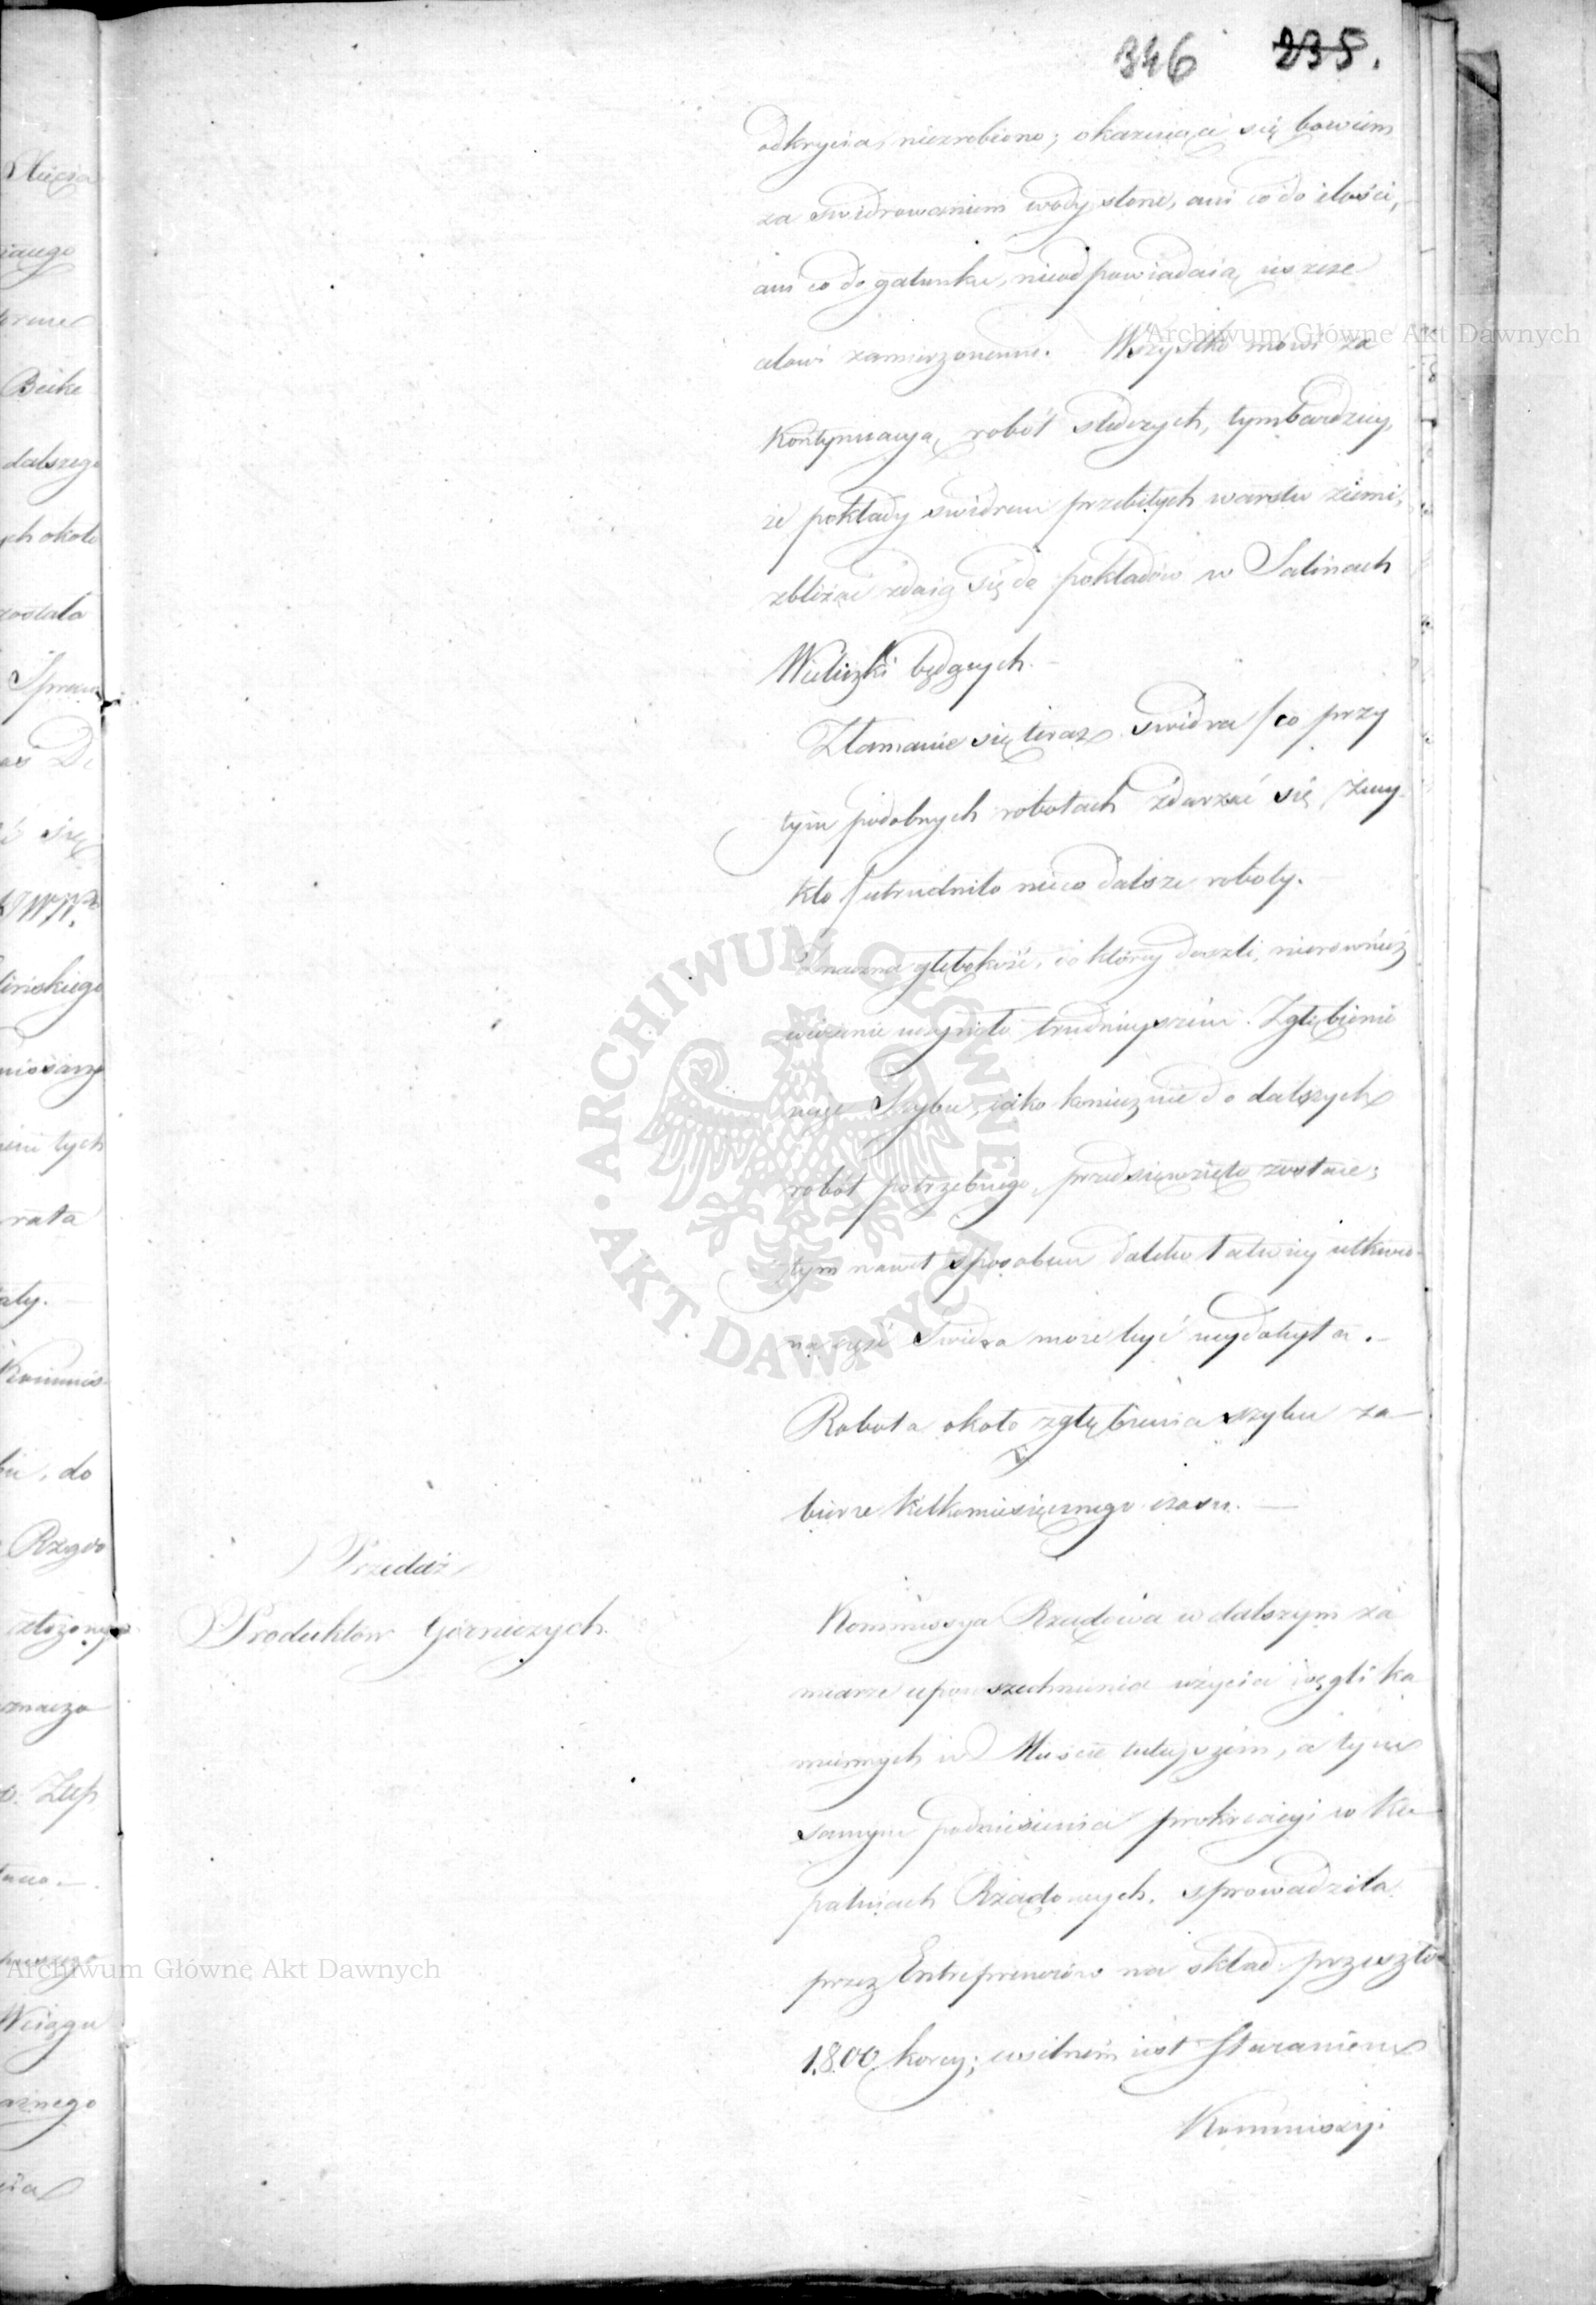 346 235.
odkrycia, niezrobiono; okazuiące się bowiem
za swidrowaniem wody słone, ani co do ilości,
ani co do gatunku, nieodpowiadaią ieszcze
celowi zamierzonemu. Wszystko mówi za
kontynuacyą robót śledczych, tymbardziey,
że pokłady swidrem przebitych warstw ziemi,
zbliżać zdaią się do pokładów w Salinach
Wieliczki będących.
Złamanie się teraz swidra /co przy
tym podobnych robotach zdarzać się zwy-
kło/ utrudniło nieco dalsze roboty.
Znaczna głębokość, do którey doszli, nierównież
wiercenie uczyniło trudnieyszém. Zgłębienie
więc Szybu, iako koniecznie do dalszych
robót potrzebnego, przedsięwzięto zostaie;
tym nawet sposobem daleko łatwiey utkwio-
na część Swidra może być wydobyta.
Robota około zgłębienia szybu za-
bierze kilkomiesięcznego czasu.
Przedaż
Produktów Górniczych.
Kommissya Rządowa w dalszym za
miarze upowszechnienia użycia węgli ka
miennych w Mieście tuteyszém, a tym
samym podniesienia produkcyi w Ko-
palniach Rządowych, sprowadziła
przez Entreprenerów na skład przeszło
1800 korcy; usilném iest staraniem
Kommissyi
Archiwum Główne Akt Dawnych
ARCHIWUM GŁÓWNE AKT DAWNYCH
Archiwum Główne Akt Dawnych